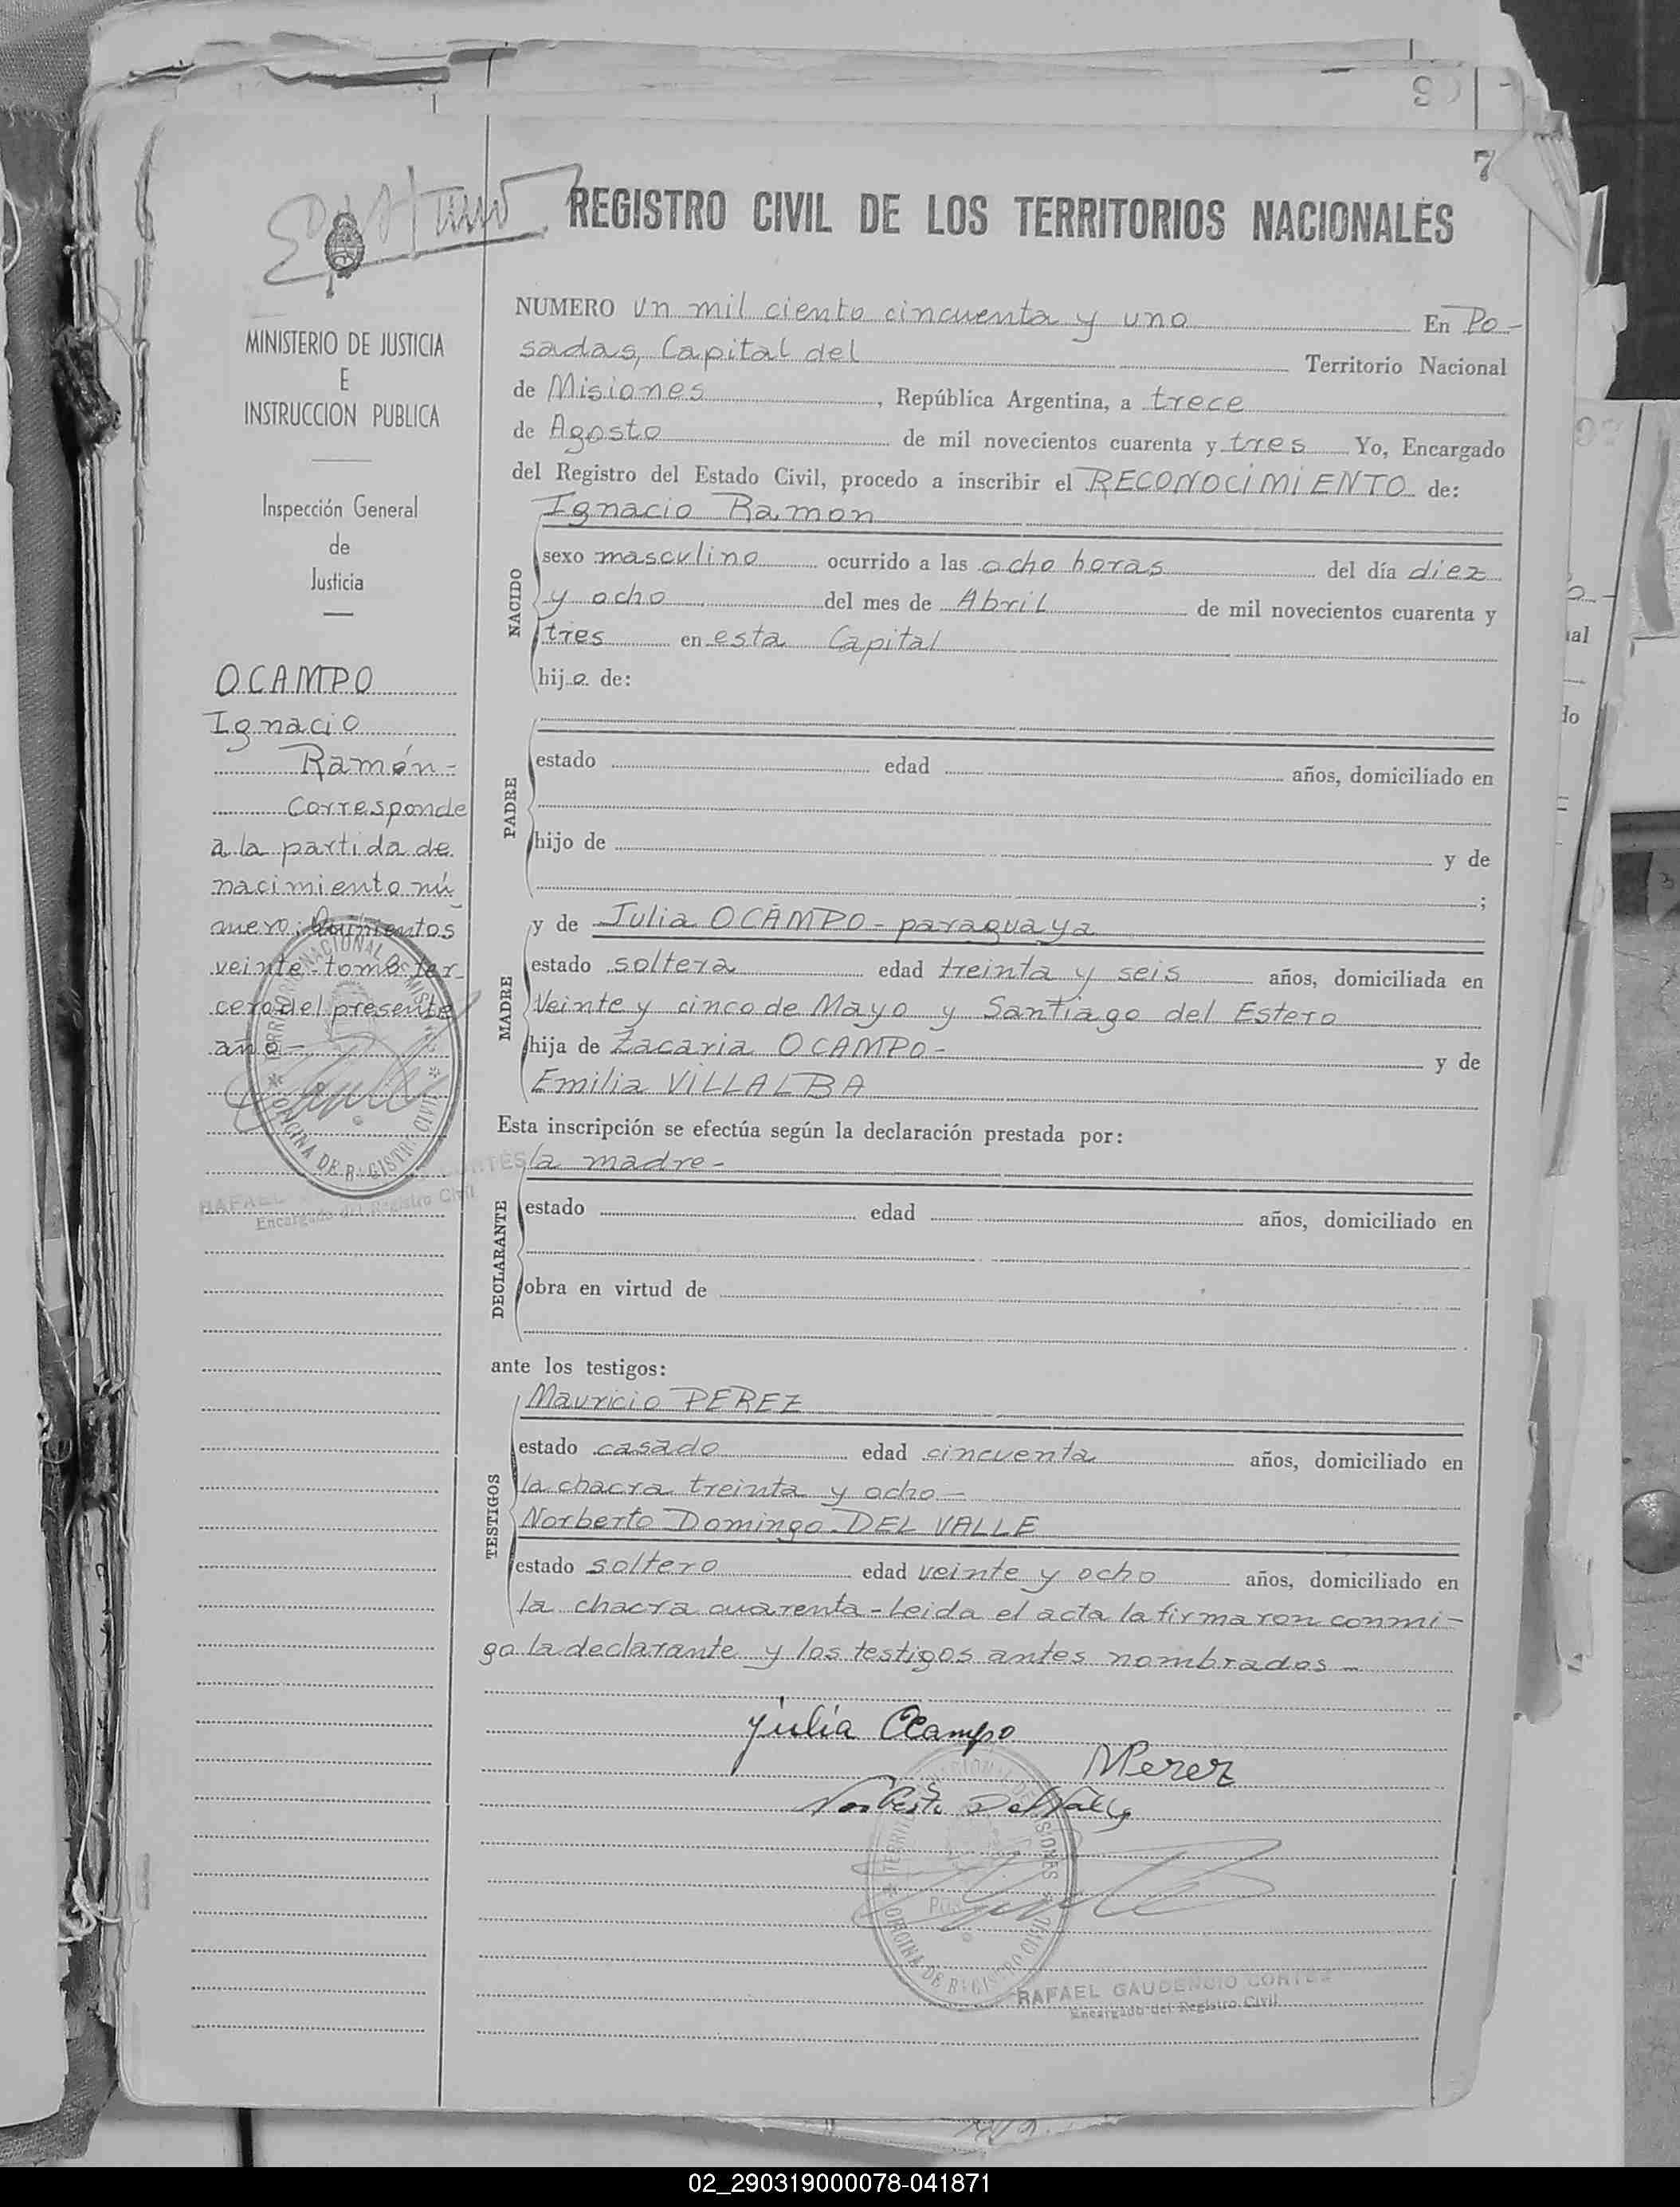 7
REGISTRO CIVIL DE LOS TERRITORIOS NACIONALES
MINISTERIO DE JUSTICIA
E
INSTRUCCION PUBLICA
Inspección General
de
Justicia
OCAMPO
Ignacio
Ramón-
Corresponde
a la partida de
nacimiento nú
mero: Quinientos
veinte-tomo ter-
cero del presente
año-
NUMERO un mil ciento cincuenta y uno En Po-
sadas, Capital del Territorio Nacional
de Misiones, República Argentina, a trece
de Agosto de mil novecientos cuarenta y tres Yo, Encargado
del Registro del Estado Civil, procedo a inscribir el RECONOCIMIENTO de:
NACIDO
Ignacio Ramon
sexo masculino ocurrido a las ocho horas del día diez
y ocho del mes de Abril de mil novecientos cuarenta y
tres en esta Capital
hijo de:
PADRE
estado edad años, domiciliado en
hijo de y de
;
MADRE
y de Julia OCAMPO - paraguaya
estado soltera edad treinta y seis años, domiciliada en
Veinte y cinco de Mayo y Santiago del Estero
hija de Zacaria OCAMPO- y de
Emilia VILLALBA
Esta inscripción se efectúa según la declaración prestada por:
DECLARANTE
la madre-
estado edad años, domiciliado en
obra en virtud de
ante los testigos:
TESTIGOS
Mauricio PEREZ
estado casado edad cincuenta años, domiciliado en
la chacra treinta y ocho-
Norberto Domingo DEL VALLE
estado soltero edad veinte y ocho años, domiciliado en
la chacra cuarenta-Leida el acta la firmaron conmi-
go la declarante y los testigos antes nombrados-
julia Ocampo
MPerez
Norberto DelValle
OFICINA DE REGISTRO CIVIL
RAFAEL GAUDENCIO CORTES
Encargado del Registro Civil
02_290319000078-041871